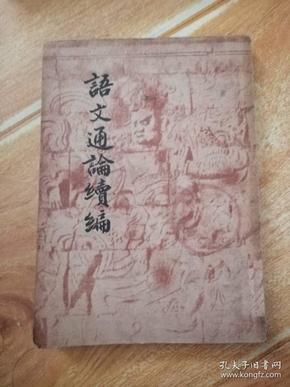 語文通論續編
孔夫子旧书网
kongfz.com